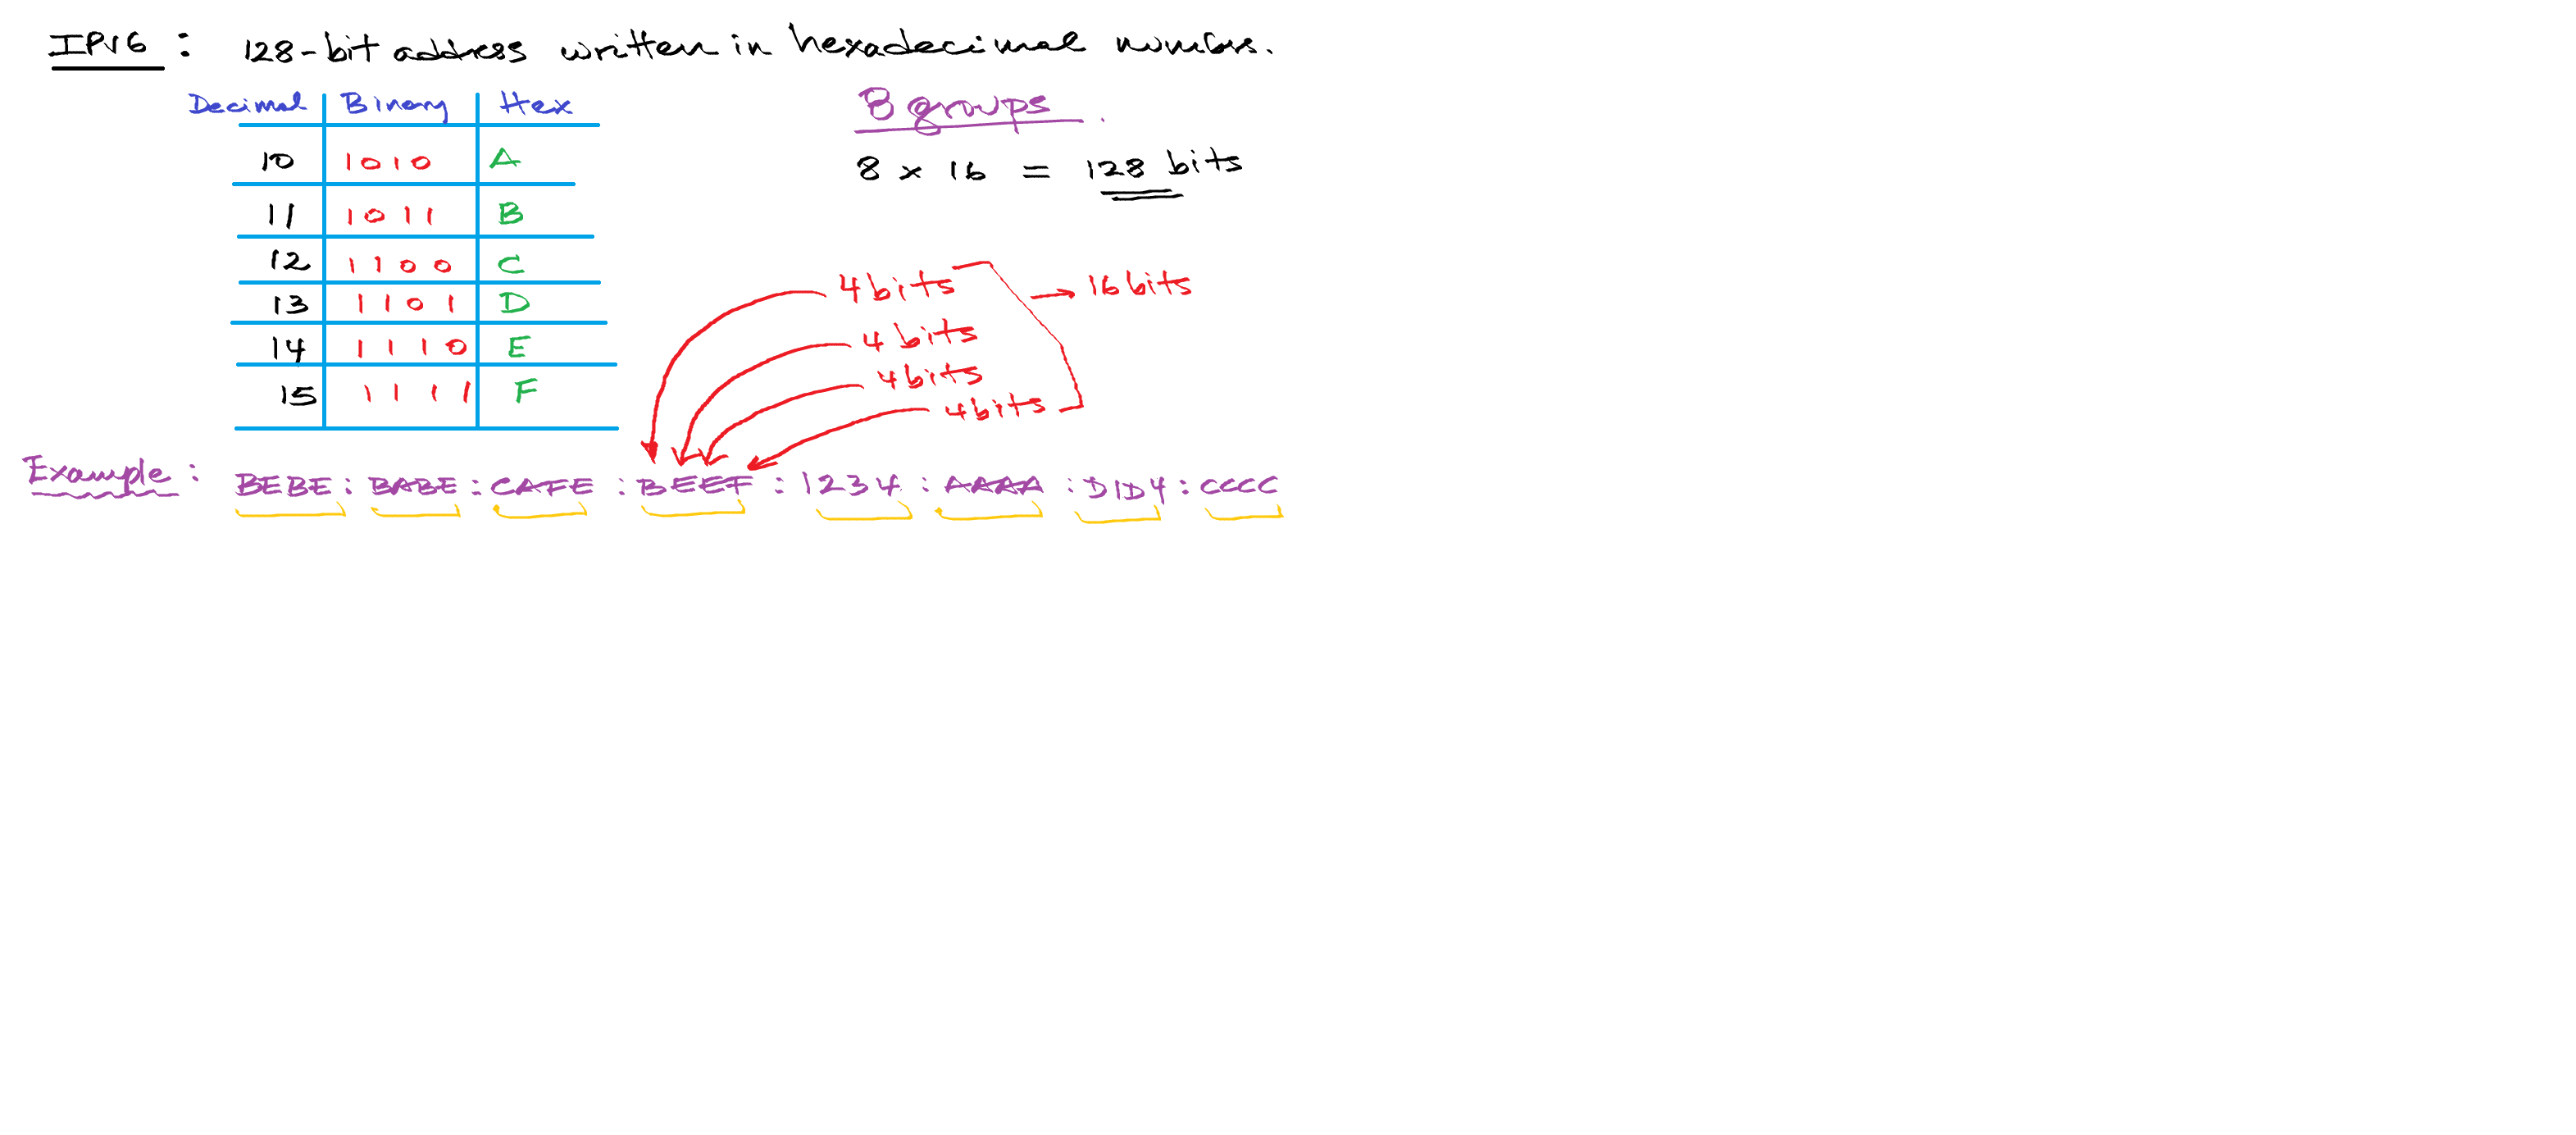 IPv6 : 128-bit address written in hexadecimal numbers.
Decimal Binary Hex
10 1010 A
11 1011 B
12 1100 C
13 1101 D
14 1110 E
15 1111 F
8 groups.
8 × 16 = 128 bits
4 bits → 16 bits
4 bits
4 bits
4 bits
Example : BEBE : BABE : CAFE : BEEF : 1234 : AAAA : D1D4 : CCCC